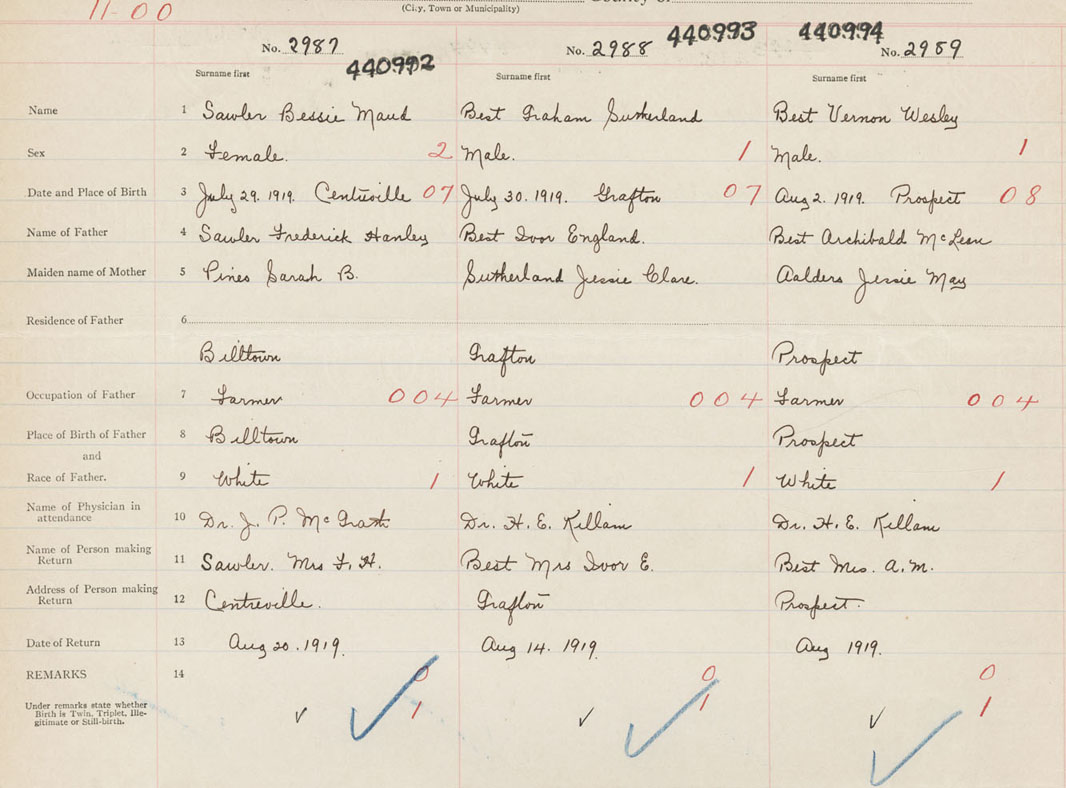 11-00
County of
(City, Town or Municipality)
440993 440994
No. 2987 No. 2988 No. 2989
440992
Surname first Surname first Surname first
Name 1 Sawler Bessie Maud Best Graham Sutherland Best Vernon Wesley
Sex 2 Female. 2 Male. 1 Male. 1
Date and Place of Birth 3 July 29. 1919. Centreville 07 July 30. 1919. Grafton 07 Aug 2. 1919. Prospect 08
Name of Father 4 Sawler Frederick Hanley Best Ivor England. Best Archibald McLean
Maiden name of Mother 5 Pines Sarah B. Sutherland Jessie Clare. Aalders Jessie May
Residence of Father 6
Billtown Grafton Prospect
Occupation of Father 7 Farmer 004 Farmer 004 Farmer 004
Place of Birth of Father 8 Billtown Grafton Prospect
and
Race of Father. 9 White 1 White 1 White 1
Name of Physician in
attendance 10 Dr. J. P. McGrath Dr. H. E. Killam Dr. H. E. Killam
Name of Person making
Return 11 Sawler. Mrs F. H. Best Mrs Ivor E. Best Mrs. A. M.
Address of Person making
Return 12 Centreville. Grafton Prospect.
Date of Return 13 Aug 20. 1919. Aug 14. 1919. Aug 1919.
REMARKS 14 0 0 0
Under remarks state whether
Birth is Twin, Triplet, Ille-
gitimate or Still-birth. 1 1 1